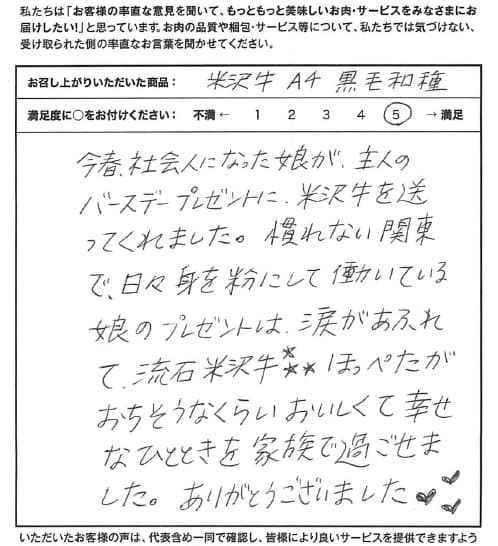 私たちは「お客様の率直な意見を聞いて、もっともっと美味しいお肉・サービスをみなさまにお
届けしたい！」と思っています。お肉の品質や梱包・サービス等について、私たちでは気づけない、
受け取られた側の率直なお言葉を聞かせてください。
お召し上がりいただいた商品： 米沢牛 A4 黒毛和種
満足度に○をお付けください： 不満 ← 1 2 3 4 5 → 満足
今春、社会人になった娘が、主人の
バースデープレゼントに、米沢牛を送
ってくれました。慣れない関東
で、日々身を粉にして働いている
娘のプレゼントは、涙があふれ
て、流石米沢牛★★★ほっぺたが
おちそうなくらいおいしくて幸せ
なひとときを家族で過ごせま
した。ありがとうございました
いただいたお客様の声は、代表含め一同で確認し、皆様により良いサービスを提供できますよう